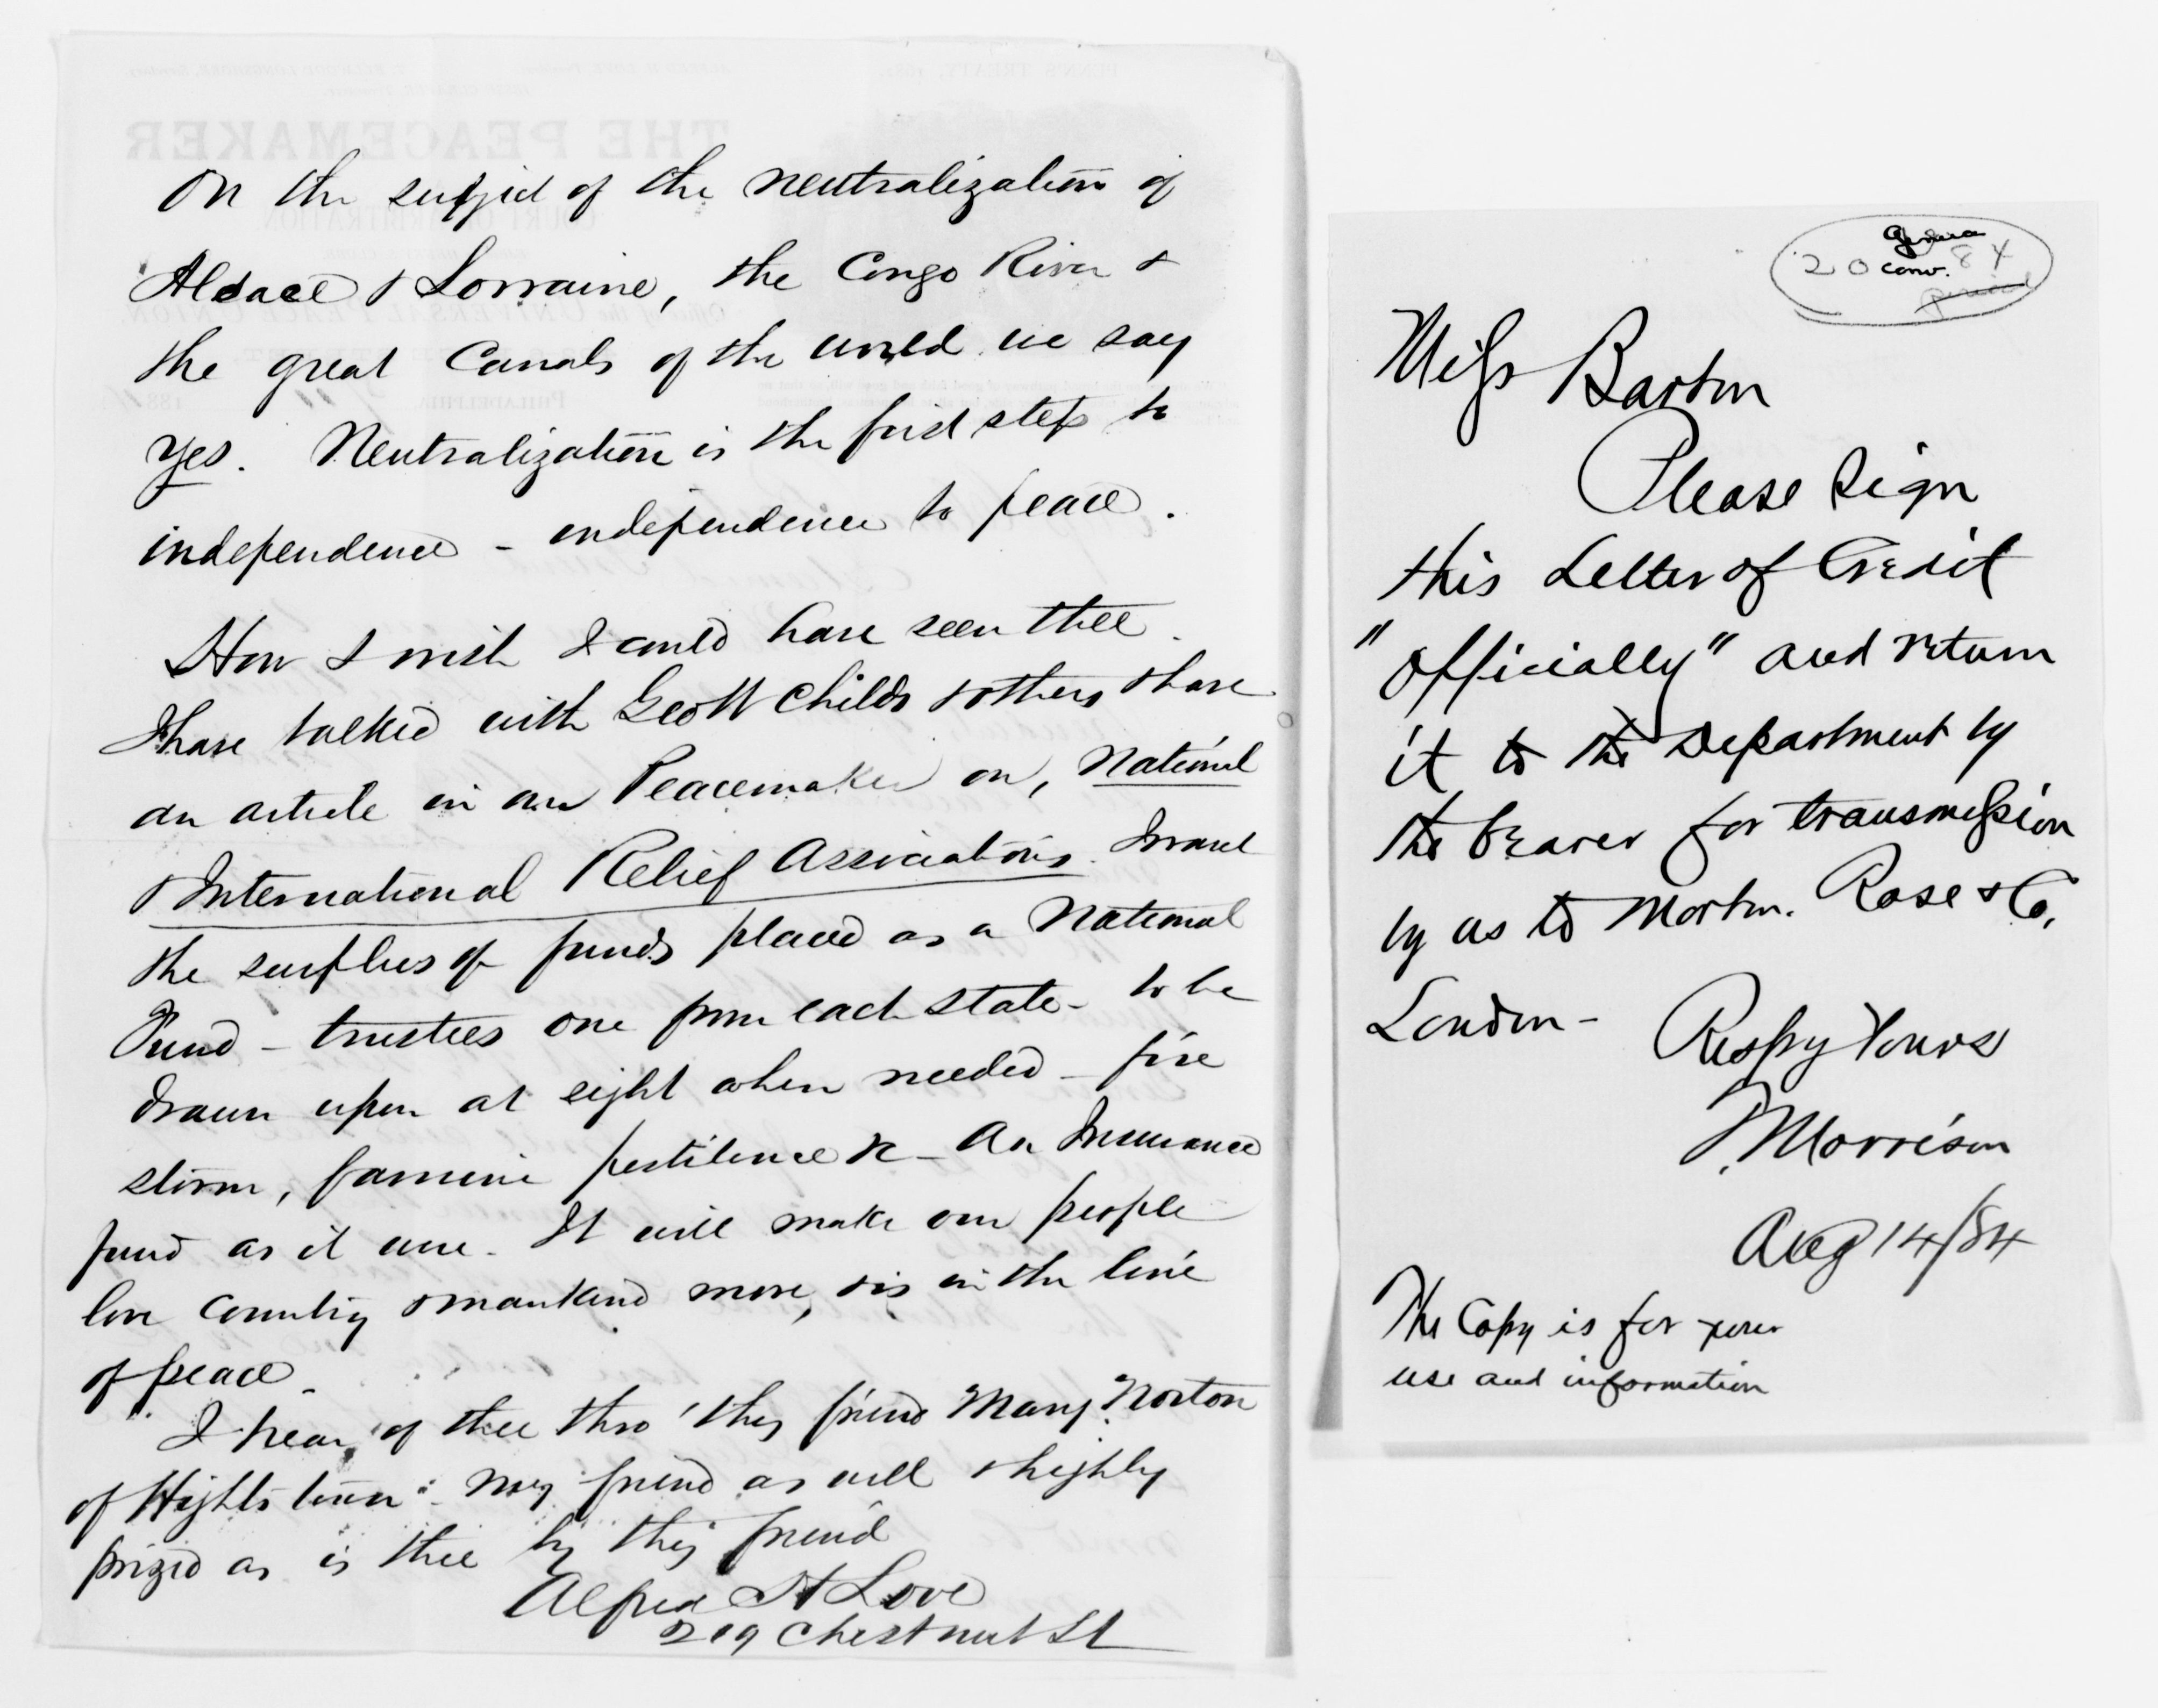 On the subject of the neutralization of
Alsace & Lorraine, the Congo River &
the great Canals of the world we say
yes. Neutralization is the first step to
independence - independence to peace.
How I wish I could have seen thee.
I have talked with Geo W Childs & others & have
an article in our Peacemaker on, National
& International Relief Associations. I want
the surplus of funds placed as a National
Fund - trustees one from each state - to be
drawn upon at sight when needed - fire
storm, famine pestilence &c - An Insurance
fund as it were. It will make our people
love Country & mankind more, & is in the line
of peace.
I hear of thee thro' thy friend Mary Norton
of Hightstown: my friend as well & highly
prized as is thee by thy friend
Alfred H Love
219 Chestnut St
Geneva
20 conv. 84
Miss Barton
Please sign
this Letter of Credit
"Officially" and return
it to the Department by
the bearer for transmission
by us to Morton. Rose & Co.
London -
Respy Yours
Morrison
Aug 14/84
The Copy is for your
use and information
THE PEACEMAKER
PENN'S TREATY, 1682.
COURT OF ARBITRATION.
Office of the UNIVERSAL PEACE UNION,
PHILADELPHIA
188